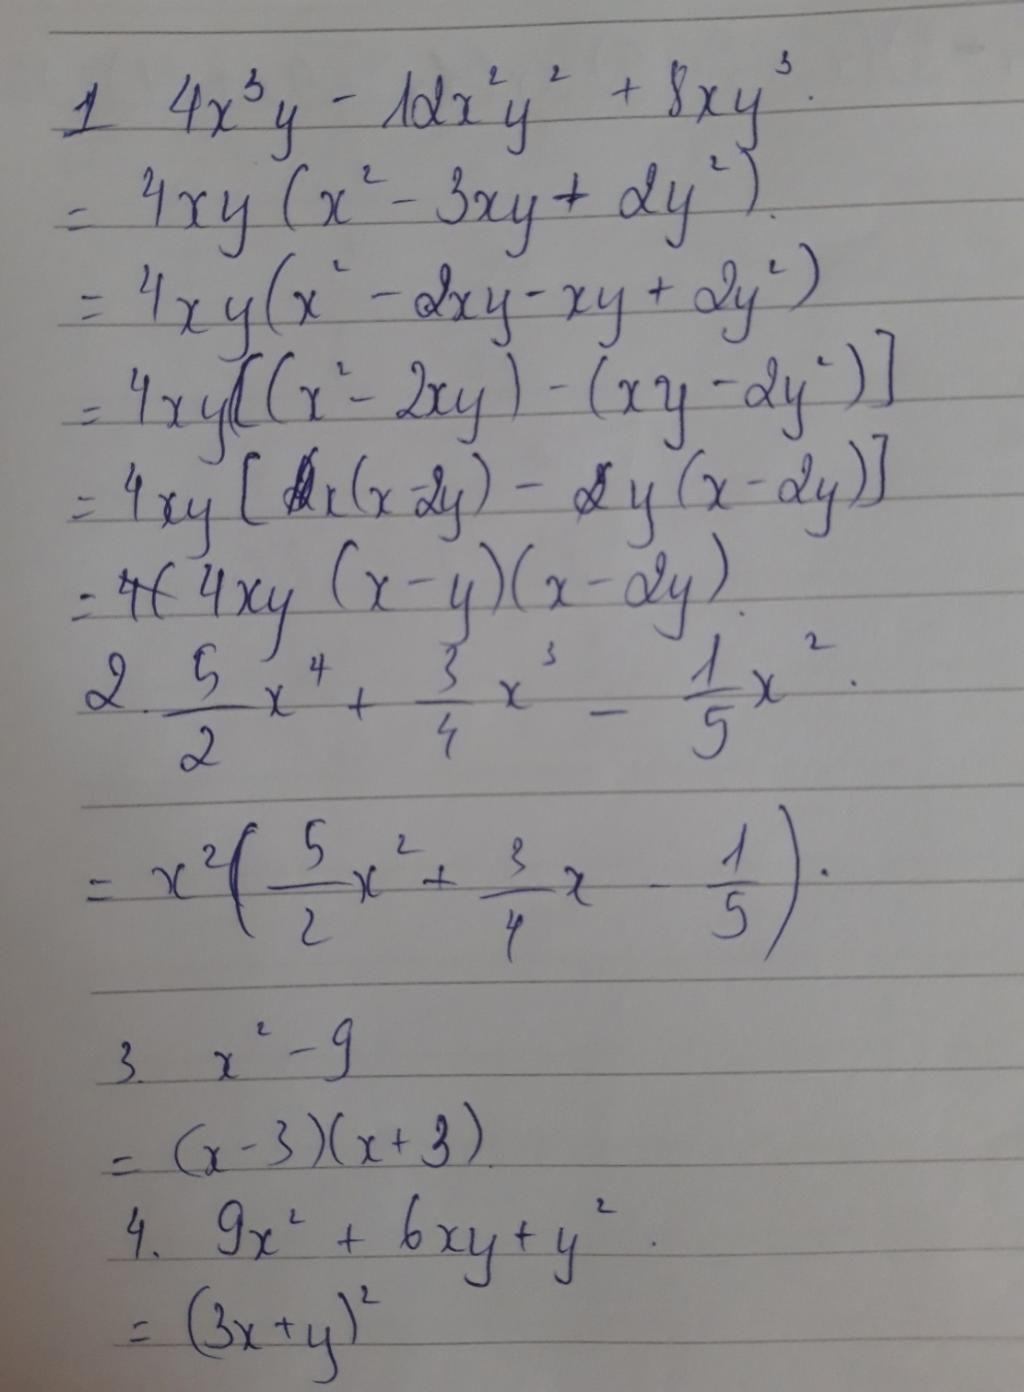 1 4x³y - 12x²y² + 8xy³.
= 4xy (x² - 3xy + 2y²).
= 4xy(x² - 2xy - xy + 2y²)
= 4xy[(x² - 2xy) - (xy - 2y²)]
= 4xy [ x(x - 2y) - y (x - 2y)]
= 4xy (x - y)(x - 2y).
2. 5/2 x⁴ + 3/4 x³ - 1/5 x².
= x²(5/2 x² + 3/4 x - 1/5).
3. x² - 9
= (x - 3)(x + 3).
4. 9x² + 6xy + y².
= (3x + y)²